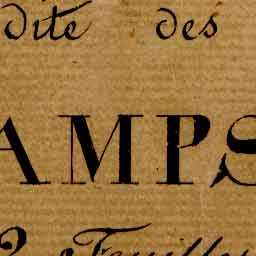 dite des
AMPS
2 Feuille